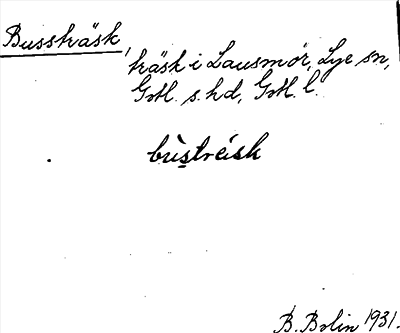 Bussträsk,
träsk i Lausmör, Lye sn,
Gotl. s. hd, Gotl. l.
bùstréisk
B. Bolin 1931.